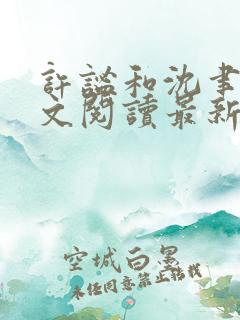 許謐和沈書
文閱讀最新
空城白墨
未经同意禁止转载